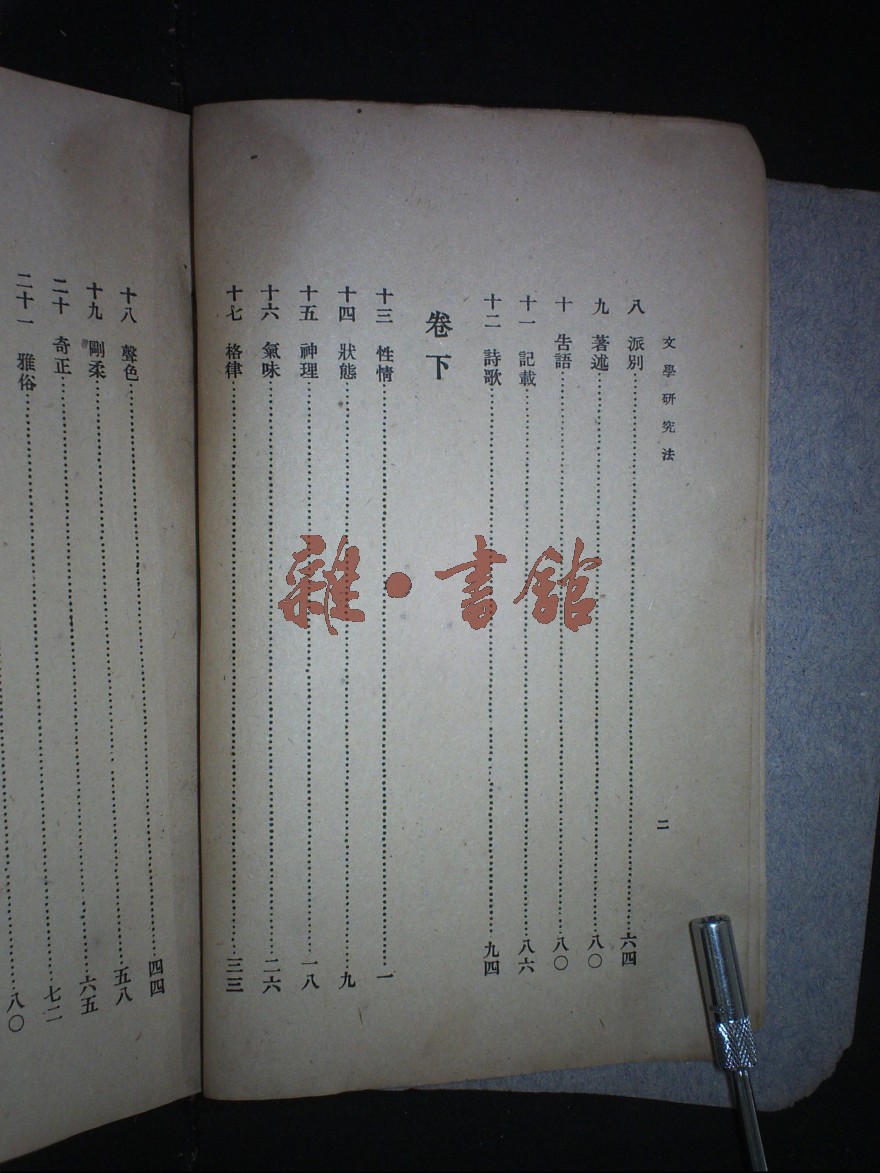 文學研究法
二
八 派別……六四
九 著述……八〇
十 告語……八〇
十一 記載……八六
十二 詩歌……九四
卷下
十三 性情……一
十四 狀態……九
十五 神理……一八
十六 氣味……二六
十七 格律……三三
十八 聲色……四四
十九 剛柔……五八
二十 奇正……六五
二十一 雅俗……七二
八〇
雜·書館